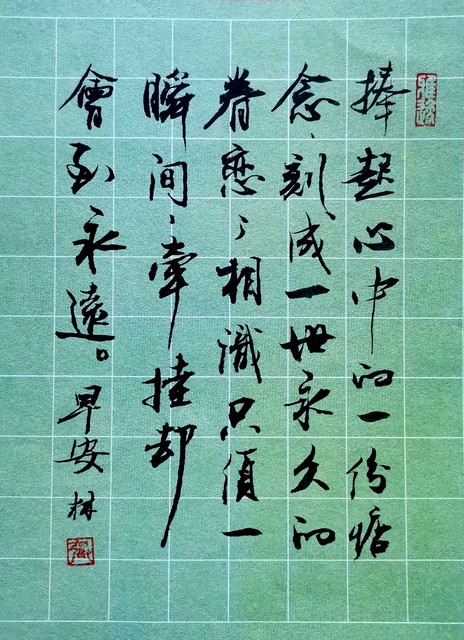 捧起心中的一份惦
念、刻成一世永久的
眷恋、相識只須一
瞬间、牽挂却
會到永遠。早安林